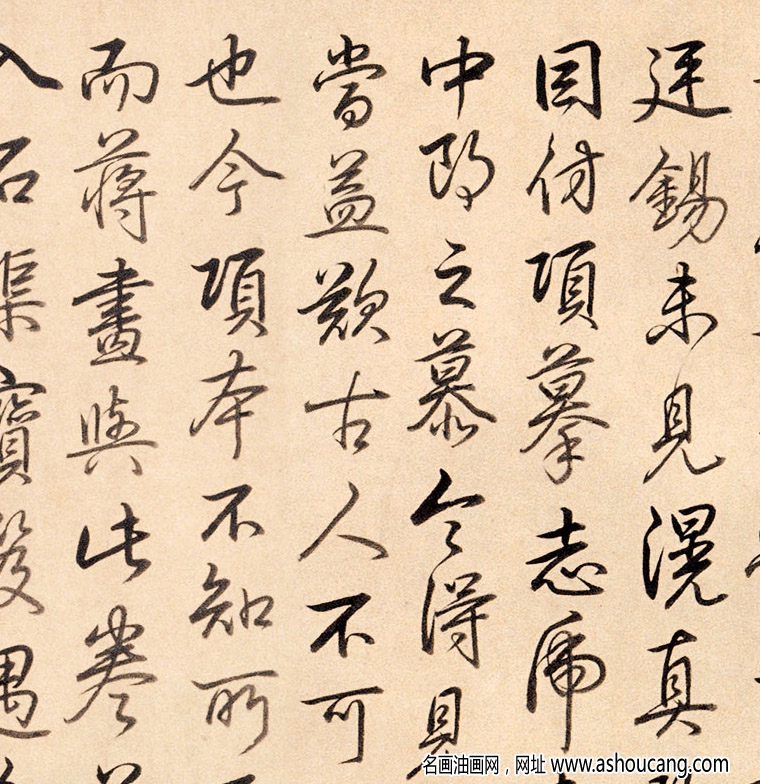 廷錫未見滉真
因仿項摹志虎
中郎之慕今得見
當益歎古人不可
也今項本不知所
而蔣畫與此卷
入石渠寶笈遇
名画油画网，网址 www.ashoucang.com